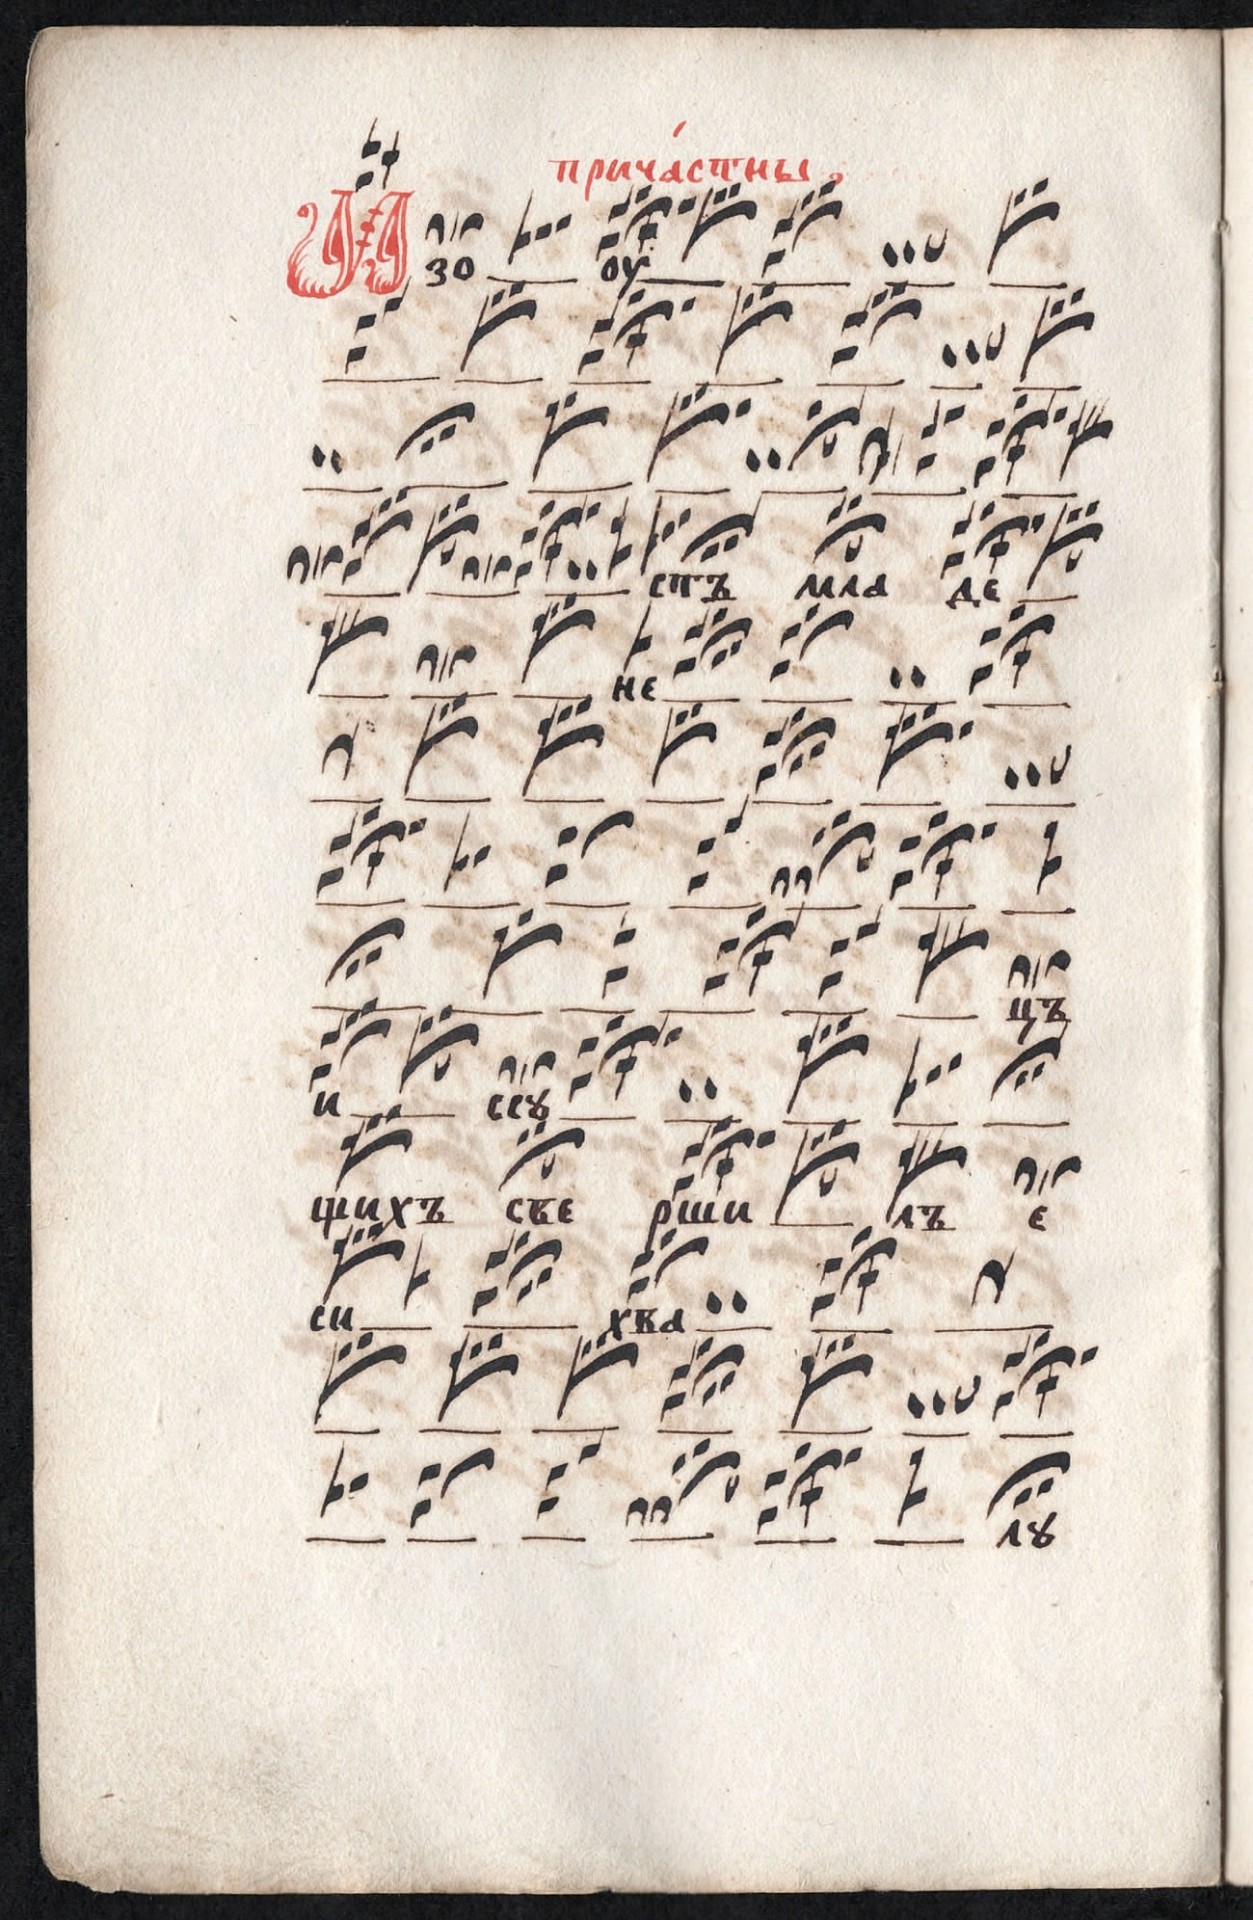 прича́стны
И зо оу
стъ мла де
не
цъ
и ссꙋ
щихъ све рши лъ е
си хва
лꙋ